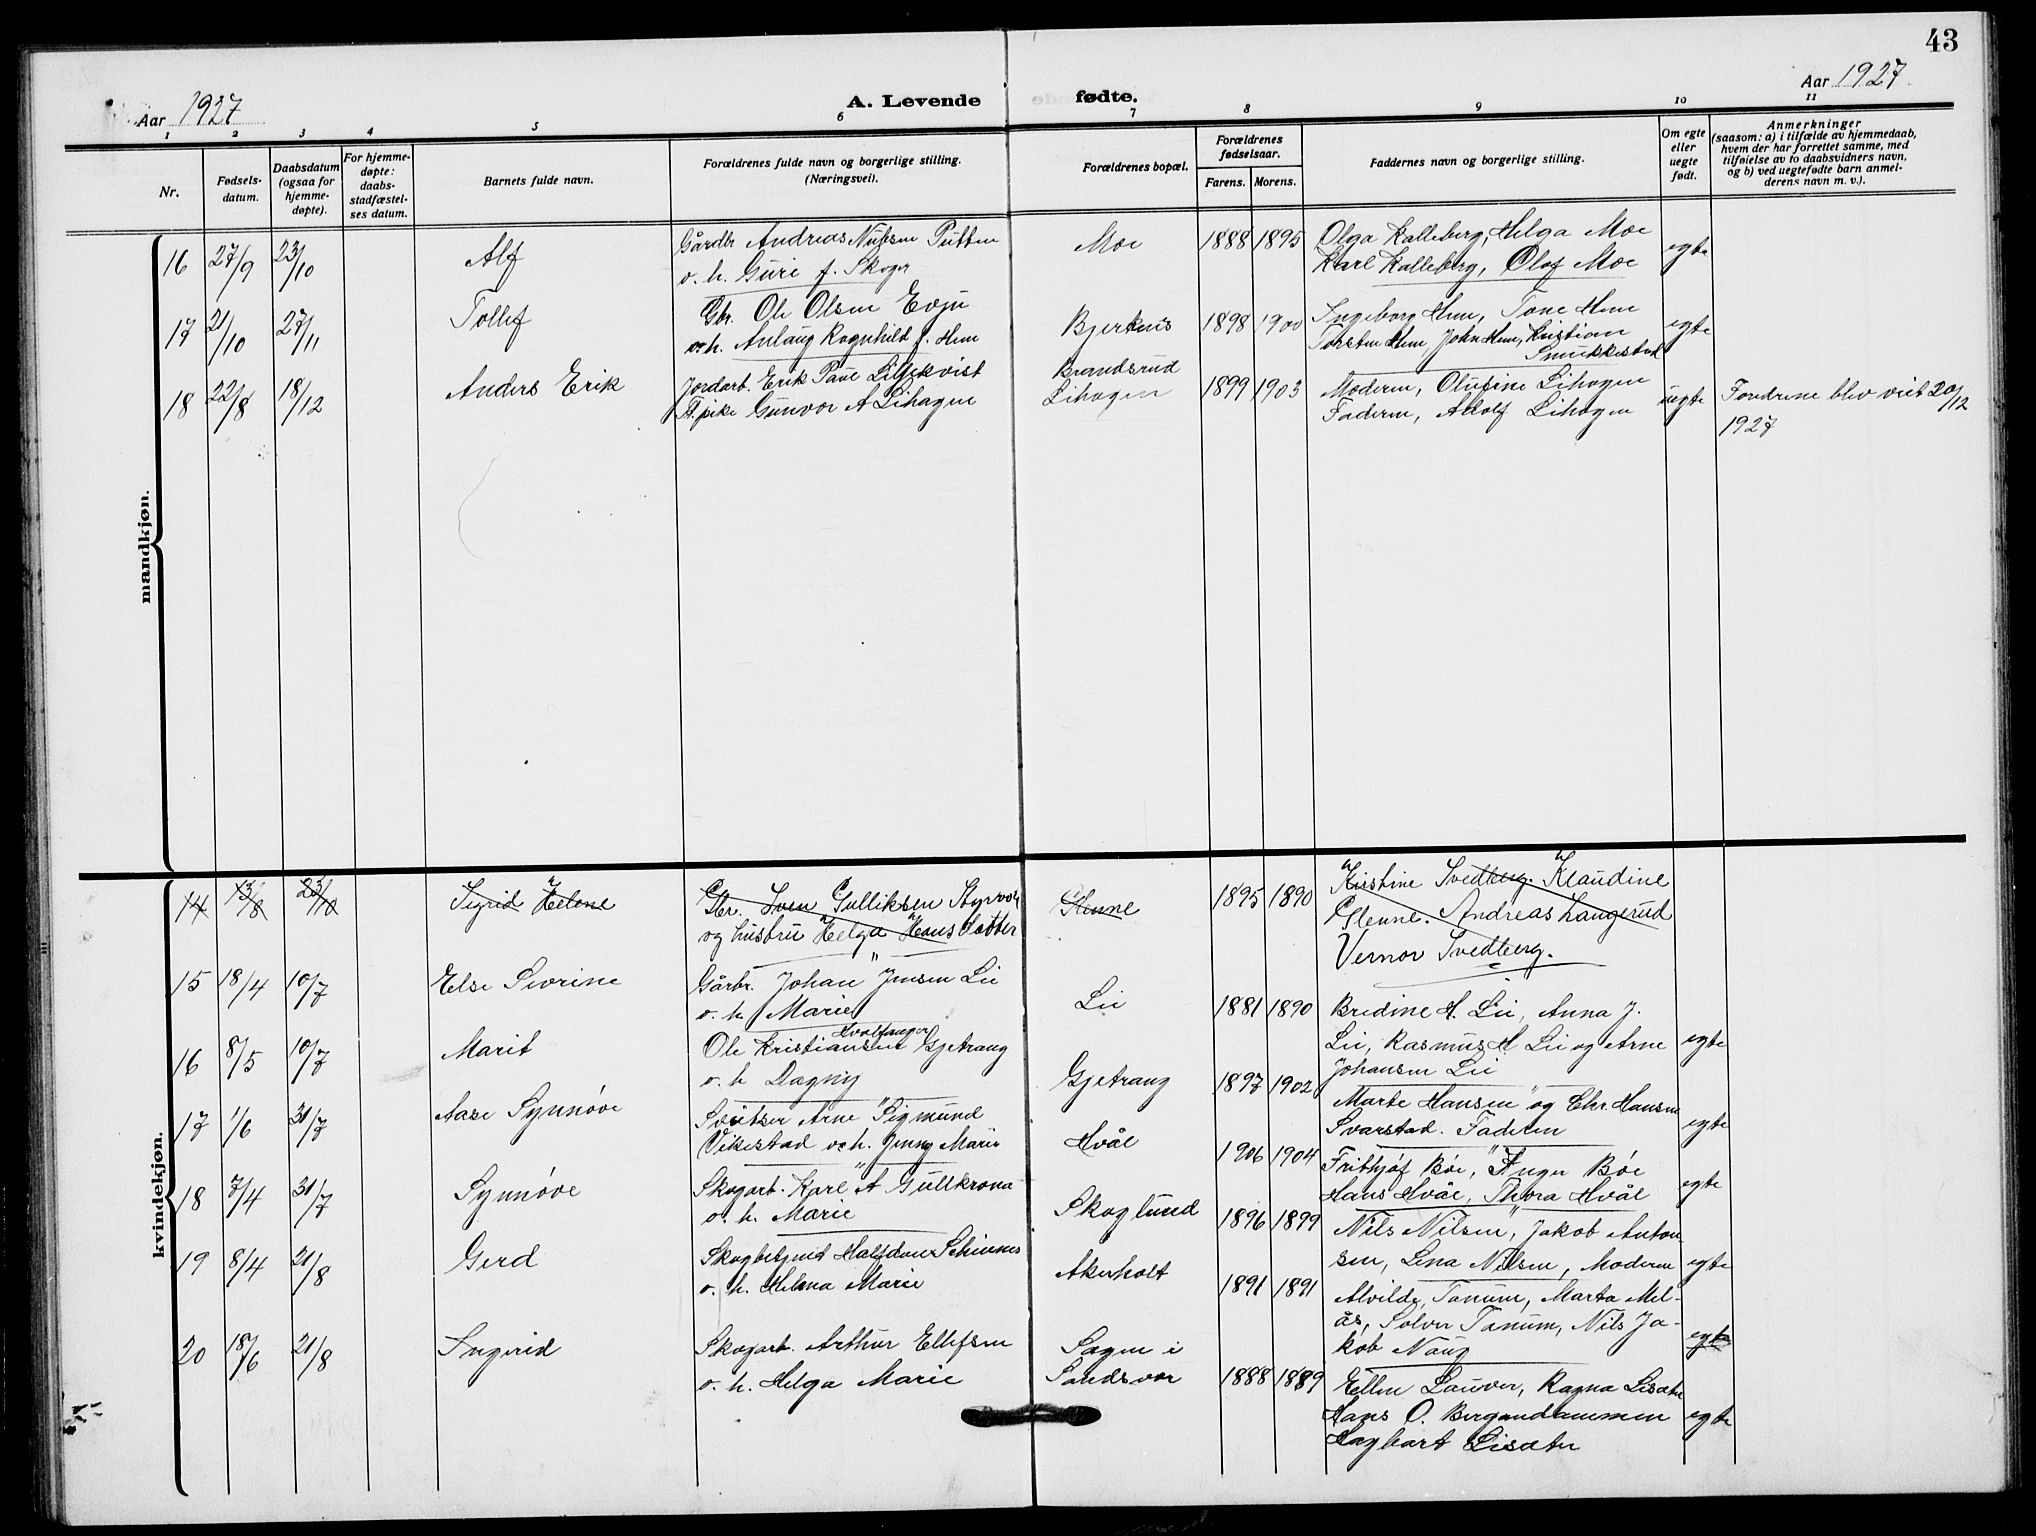 43
Aar 1927
A. Levende fødte.
Aar 1927
1 2 3 4 5 6 7 8 9 10 11
Nr.
Fødsels-
datum.
Daabsdatum
(ogsaa for
hjemme-
døpte).
For hjemme-
døpte:
daabs-
stadfæstel-
ses datum.
Barnets fulde navn.
Forældrenes fulde navn og borgerlige stilling.
(Næringsvei).
Forældrenes bopæl.
Forældrenes
fødselsaar.
Farens. Morens.
Faddernes navn og borgerlige stilling.
Om egte
eller
uegte
født.
Anmerkninger
(saasom: a) i tilfælde av hjemmedaab,
hvem der har forrettet samme, med
tilføielse av to daabsvidners navn,
og b) ved uegtefødte barn anmel-
derens navn m. v.).
mandkjøn.
16 27/9 23/10 Alf
Gårdbr Andreas Nilsen Putten
o. h. Guri f. Skoger
Moe 1888 1895
Olga Kalleberg, Helga Moe
Karl Kalleberg, Olaf Moe
egte
17 21/10 27/11 Tollef
Gbr. Ole Olsen Evju
o. h. Anlaug Ragnhild f. Hem
Bjerknes 1898 1900
Ingeborg Hem, Tone Hem
Torsten Hem, John Hem, Kristian
Smukkestad
egte
18 22/8 18/12 Anders Erik
Jordarb. Erik Paul Liljekvist
T.pike Gunvor A Lihagen
Brandsrud
Lihagen 1899 1903
Moderen, Olufine Lihagen
Faderen, Adolf Lihagen
uegte
Forældrene blev viet 20/12
1927
kvindekjøn.
14 13/8 23/10 Sigrid Helene
Gbr. Sven Gulliksen Styrvold
og hustru Helga Hansdatter
Glenne 1895 1890
Kristine Svedberg. Klaudine
Glenne. Andreas Langerud
Vernor Svedberg.
15 18/4 10/7 Else Sevrine
Gårbr. Johan Jensen Lie
o. h. Marie
Lie 1881 1890
Bredine H. Lie, Anna J.
Lie, Rasmus H Lie og Arne
Johansen Lie
egte
16 8/5 10/7 Marit
Hvalfanger
Ole Kristiansen Gjetrang
o. h Dagny
Gjetrang 1897 1902
Marte Hansen og Chr. Hansen
Svarstad. Faderen
egte
17 1/6 31/7 Aase Synnøve
Sveitser Arne Sigmund
Vikestad o. h. Jenny Marie
Hvål 1906 1904
Frithjof Bøe, Inger Bøe
Hans Hvål, Thora Hvål
egte
18 7/4 31/7 Synnøve
Skogarb. Karl A Gullkrona
o. h. Marie
Skoglund 1896 1899
Nils Nilsen, Jakob Anton
sen, Lena Nilsen, Moderen
egte
19 8/4 21/8 Gerd
Skogbetjent Halfdan Schinnes
o. h. Helena Marie
Akerholt 1891 1891
Alvilde Tanum, Marta Mel-
ås, Solver Tanum, Nils Ja-
kob Naug
egte
20 18/6 21/8 Ingerid
Skogarb. Arthur Ellefsen
o. h. Helga Marie
Sagen i
Sandsvær 1888 1889
Ellen Lauver, Ragna Lisæter
Hans O. Bergandammen
Hagbart Lisæter
egte